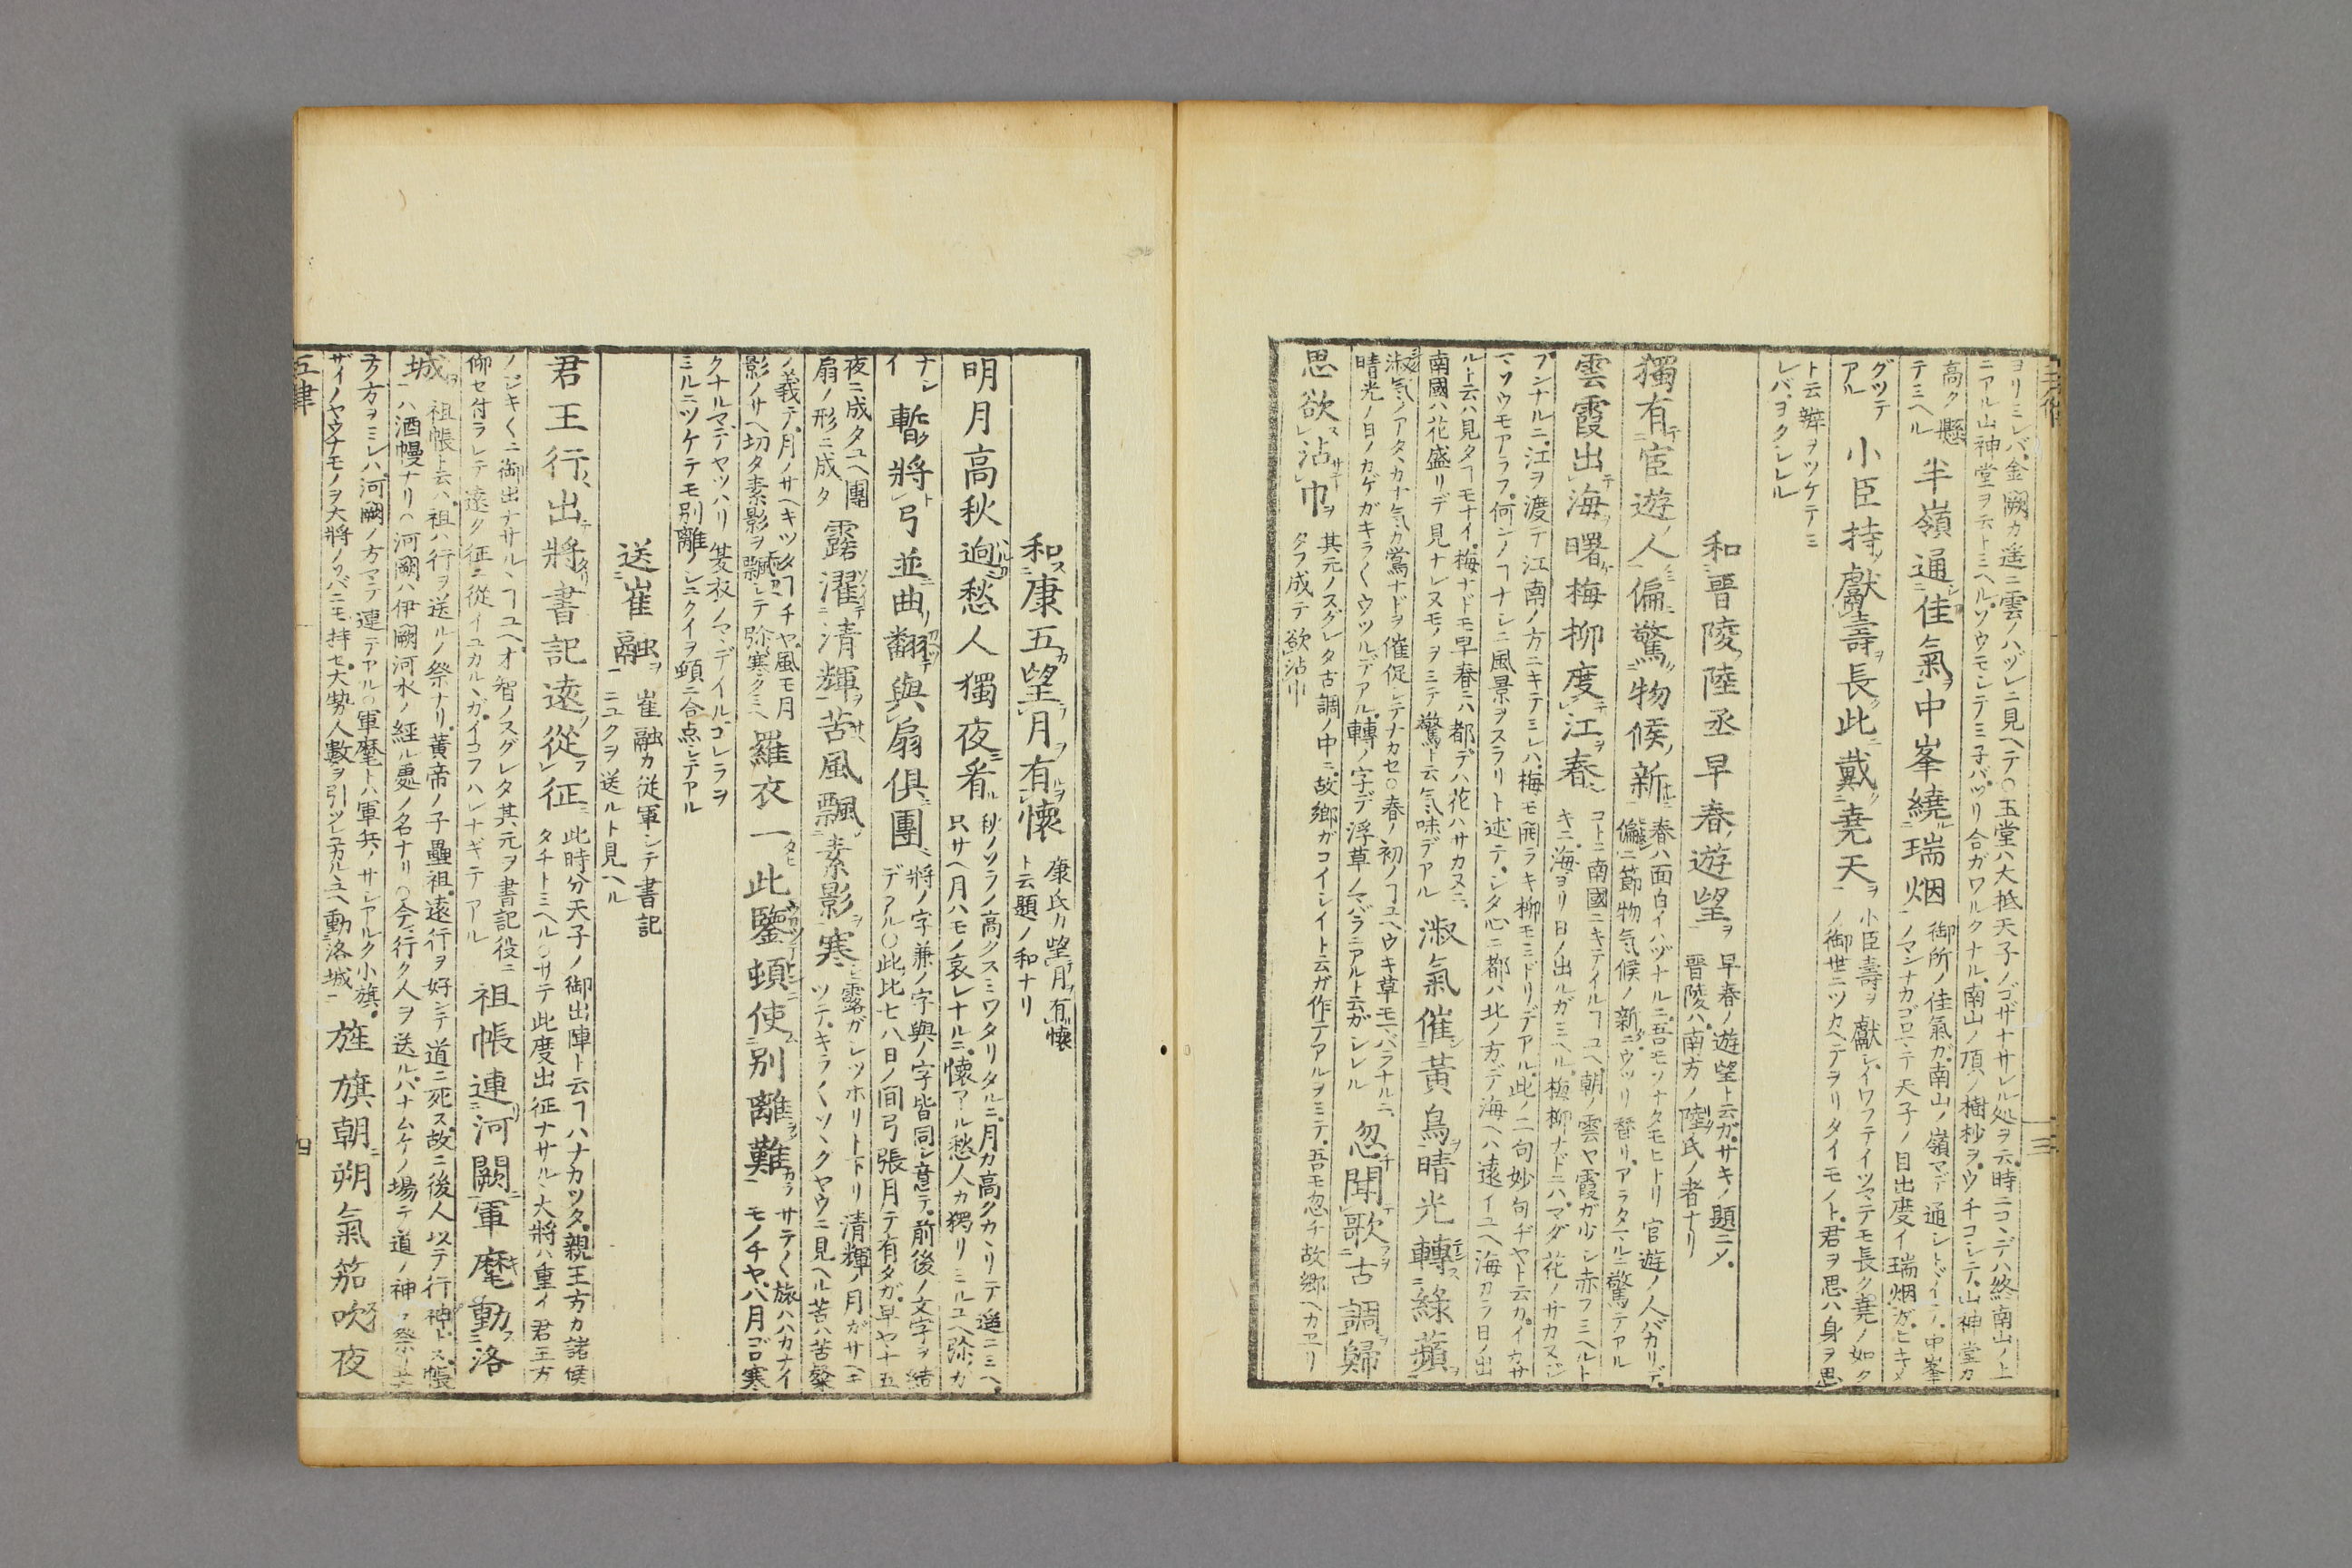 ヨリミレバ金闕カ遥ニ雲ノハヅレニ見ヘテ○玉堂ハ大抵天子ノゴザナサレル処ヲ云時ニコヽデハ終南山ノ上
ニアル山神堂ヲ云トミヘル
高ク懸
テミヘル
半嶺通佳氣中峯繞瑞烟
御所ノ佳氣ガ南山ノ嶺マデ通
グツテ
アル
小臣持獻壽長此戴堯天
小臣壽ヲ獻シイワフテイツマテモ長ク堯ノ如ク
ノ御世ニツカヘテヲリタイモノト君ヲ思ハ身ヲ思
ト云辨ヲツケテミ
レバヨクシレル
和晋陵陸丞早春遊望
早春ノ遊望ト云ガサキノ題ニソ
晋陵ハ南方ノ陸氏ノ者ナリ
獨有宦遊人偏驚物候新
春ハ面白イハヅナルニ吾モソナタモヒトリ官遊ノ人バカリデ
偏ニ節物気候ノ新ニウツリ替リアラタナルニ驚テアル
雲霞出海曙梅柳度江春
コトニ南國ニキテイルヿユヘ朝ノ雲ヤ霞ガ少シ赤フミヘルト
キニ海ヨリ日ノ出ルガミヘル梅柳ナドニハマダ花ノサカヌジ
ブンナルニ江ヲ渡テ江南ノ方ニキテミレハ梅モ開ラキ柳モミドリデアル此ノ二句妙句ヂヤト云カイカサ
マソウモアラフ何ンノヿナシニ風景ヲスラリト述テシタ心ニ都ハ北ノ方デ海ヘハ遠イユヘ海カラ日ノ出
ルト云ハ見タヿモナイ梅ナドモ早春ニハ都デハ花ハサカヌニ
南國ハ花盛リデ見ナレヌモノヲミテ驚ト云気味デアル
淑氣催黃鳥晴光轉綠蘋
淑気ノアタヽカナ気カ鶯ナドヲ催促シテナカセ○春ノ初ノヿユヘウキ草モマバラナルニ
晴光ノ日ノカゲガキラ〱ウツルデアル轉ノ字デ浮草ノマバラニアルト云ガシレル
忽聞歌古調歸
思欲沾巾
其元ノスグレタ古調ノ中ニ故鄉ガコイシイト云ガ作テアルヲミテ吾モ忽チ故鄉ヘカヱリ
タフ成テ欲沾巾
三
和康五望月有懷
康氏カ望月有懷
ト云題ノ和ナリ
明月高秋迥愁人獨夜看
秋ノソラノ高クスミワタリタルニ月カ高クカヽリテ遥ニミヘ
只サヘ月ハモノ哀レナルニ懷アル愁人カ獨リミルユヘ弥カ
ナシ
イ
暫將弓並曲翻與扇俱團
將ノ字兼ノ字與ノ字皆同シ意テ前後ノ文字ヲ結
デアル○此比七八日ノ间弓張月テ有タガ早ヤ十五
夜ニ成タユヘ團
扇ノ形ニ成タ
露濯清輝苦風飄素影寒
露ガシツホリト下リ清輝ノ月ガサヘキ
ツテキラ〱ツヽクヤウニ見ヘル苦ハ苦發
ノ義テ月ノサヘキツタヿチヤ風モ月
影ノサヘ切タ素影ヲ飄シテ弥寒クミヘ
羅衣一此鑒頓使別離難
サテ〱旅ハハカナイ
モノチヤ八月ゴロ寒
クナルマデヤツハリ夏衣ノマヽデイルコレラヲ
ミルニツケテモ別離ノシニクイヲ頓ニ合点シテアル
送崔融
崔融カ従軍シテ書記
ニユクヲ送ルト見ヘル
君王行出將書記遠從征
此時分天子ノ御出陣ト云ヿハナカツタ親王方カ諸侯
タチトミヘル○サテ此度出征ナサルヽ大將ハ重イ君王方
ノジキ〱ニ御出ナサルヽヿユヘ才智ノスグレタ其元ヲ書記役ニ
仰セ付ラレテ遠ク征ニ從イユカルヽガイコフハレナギテアル
祖帳連河闕軍麾動洛
城
祖帳ト云ハ祖ハ行ヲ送ルノ祭ナリ黃帝ノ子壘祖遠行ヲ好シテ道ニ死ス故ニ後人以テ行神トス帳
ハ酒幔ナリ河闕ハ伊闕河水ノ経ル処ノ名ナリ○今行ク人ヲ送ルハナムケノ場テ道ノ神ヲ祭
ヲ方ヲミレハ河闕ノ方マデ連テアル○軍麾トハ軍兵ノサレアルク小旗
ザイノヤウナモノヲ大將ノソバニモ持セ大勢ノ人數ヲ引ツレユカルユヘ動洛城
旌旗朝朔氣笳吹夜
五律
四